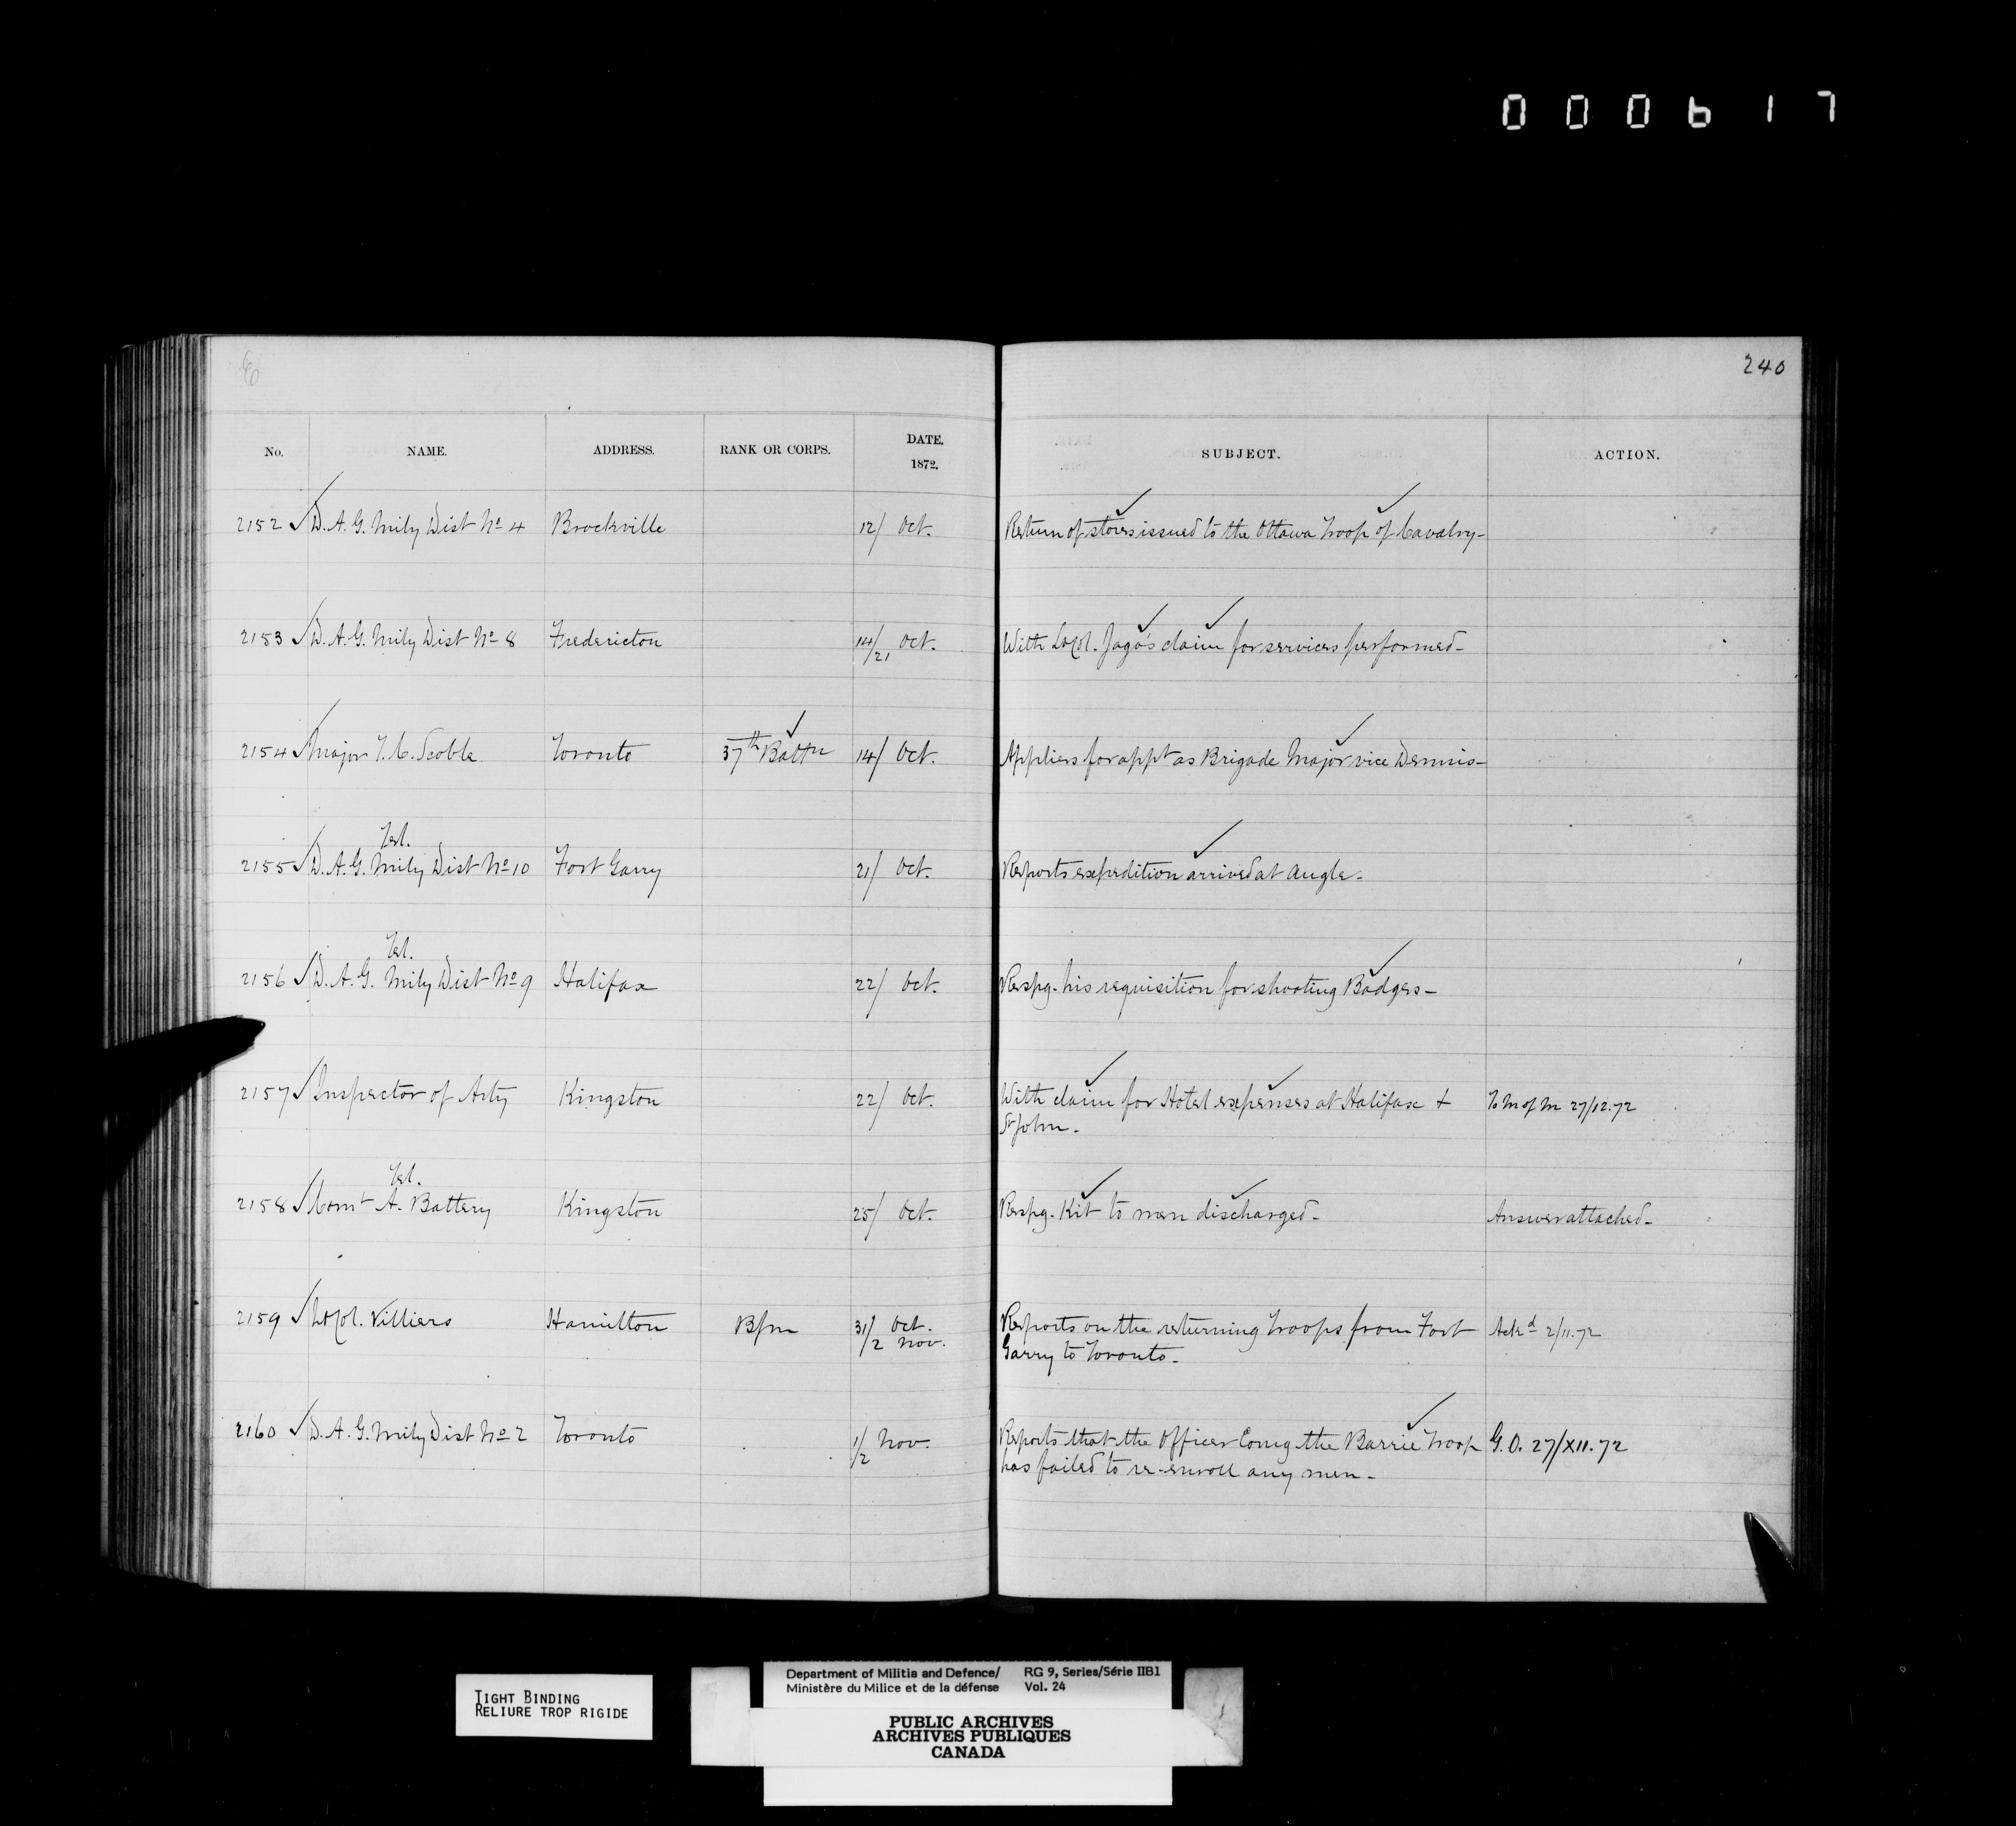 000617
240
No. NAME. ADDRESS. RANK OR CORPS. DATE. 1872. SUBJECT. ACTION.
2152 D. A. G. Mily Dist No 4 Brockville 12/ Oct. Return of stores issued to the Ottawa Troop of Cavalry-
2153 D. A. G. Mily Dist No 8 Fredericton 14/21 Oct. With Lt Col. Jago's claim for services performed-
2154 Major T. C. Scoble Toronto 37th Battn 14/ Oct. Applies for appt as Brigade Major vice Dennis-
Tel.
2155 D. A. G. Mily Dist No 10 Fort Garry 21/ Oct. Reports expedition arrived at Angle-
Tel.
2156 D. A. G. Mily Dist No 9 Halifax 22/ Oct. Respg. his requisition for shooting Badges-
2157 Inspector of Arty Kingston 22/ Oct. With claim for Hotel expenses at Halifax + To M of M 27/12.72
St John-
Tel.
2158 Comt A. Battery Kingston 25/ Oct. Respg. Kit to men discharged- Answer attached-
2159 Lt Col. Villiers Hamilton B/m 31/ Oct. Reports on the returning Troops from Fort Ackd 2/11.72
/2 Nov. Garry to Toronto-
2160 D. A. G. Mily Dist No 2 Toronto 1/2 Nov. Reports that the Officer Comg the Barrie Troop G. O. 27/XII.72
has failed to re-enroll any men-
TIGHT BINDING
RELIURE TROP RIGIDE
Department of Militia and Defence/ RG 9, Series/Série IIB1
Ministère du Milice et de la défense Vol. 24
PUBLIC ARCHIVES
ARCHIVES PUBLIQUES
CANADA